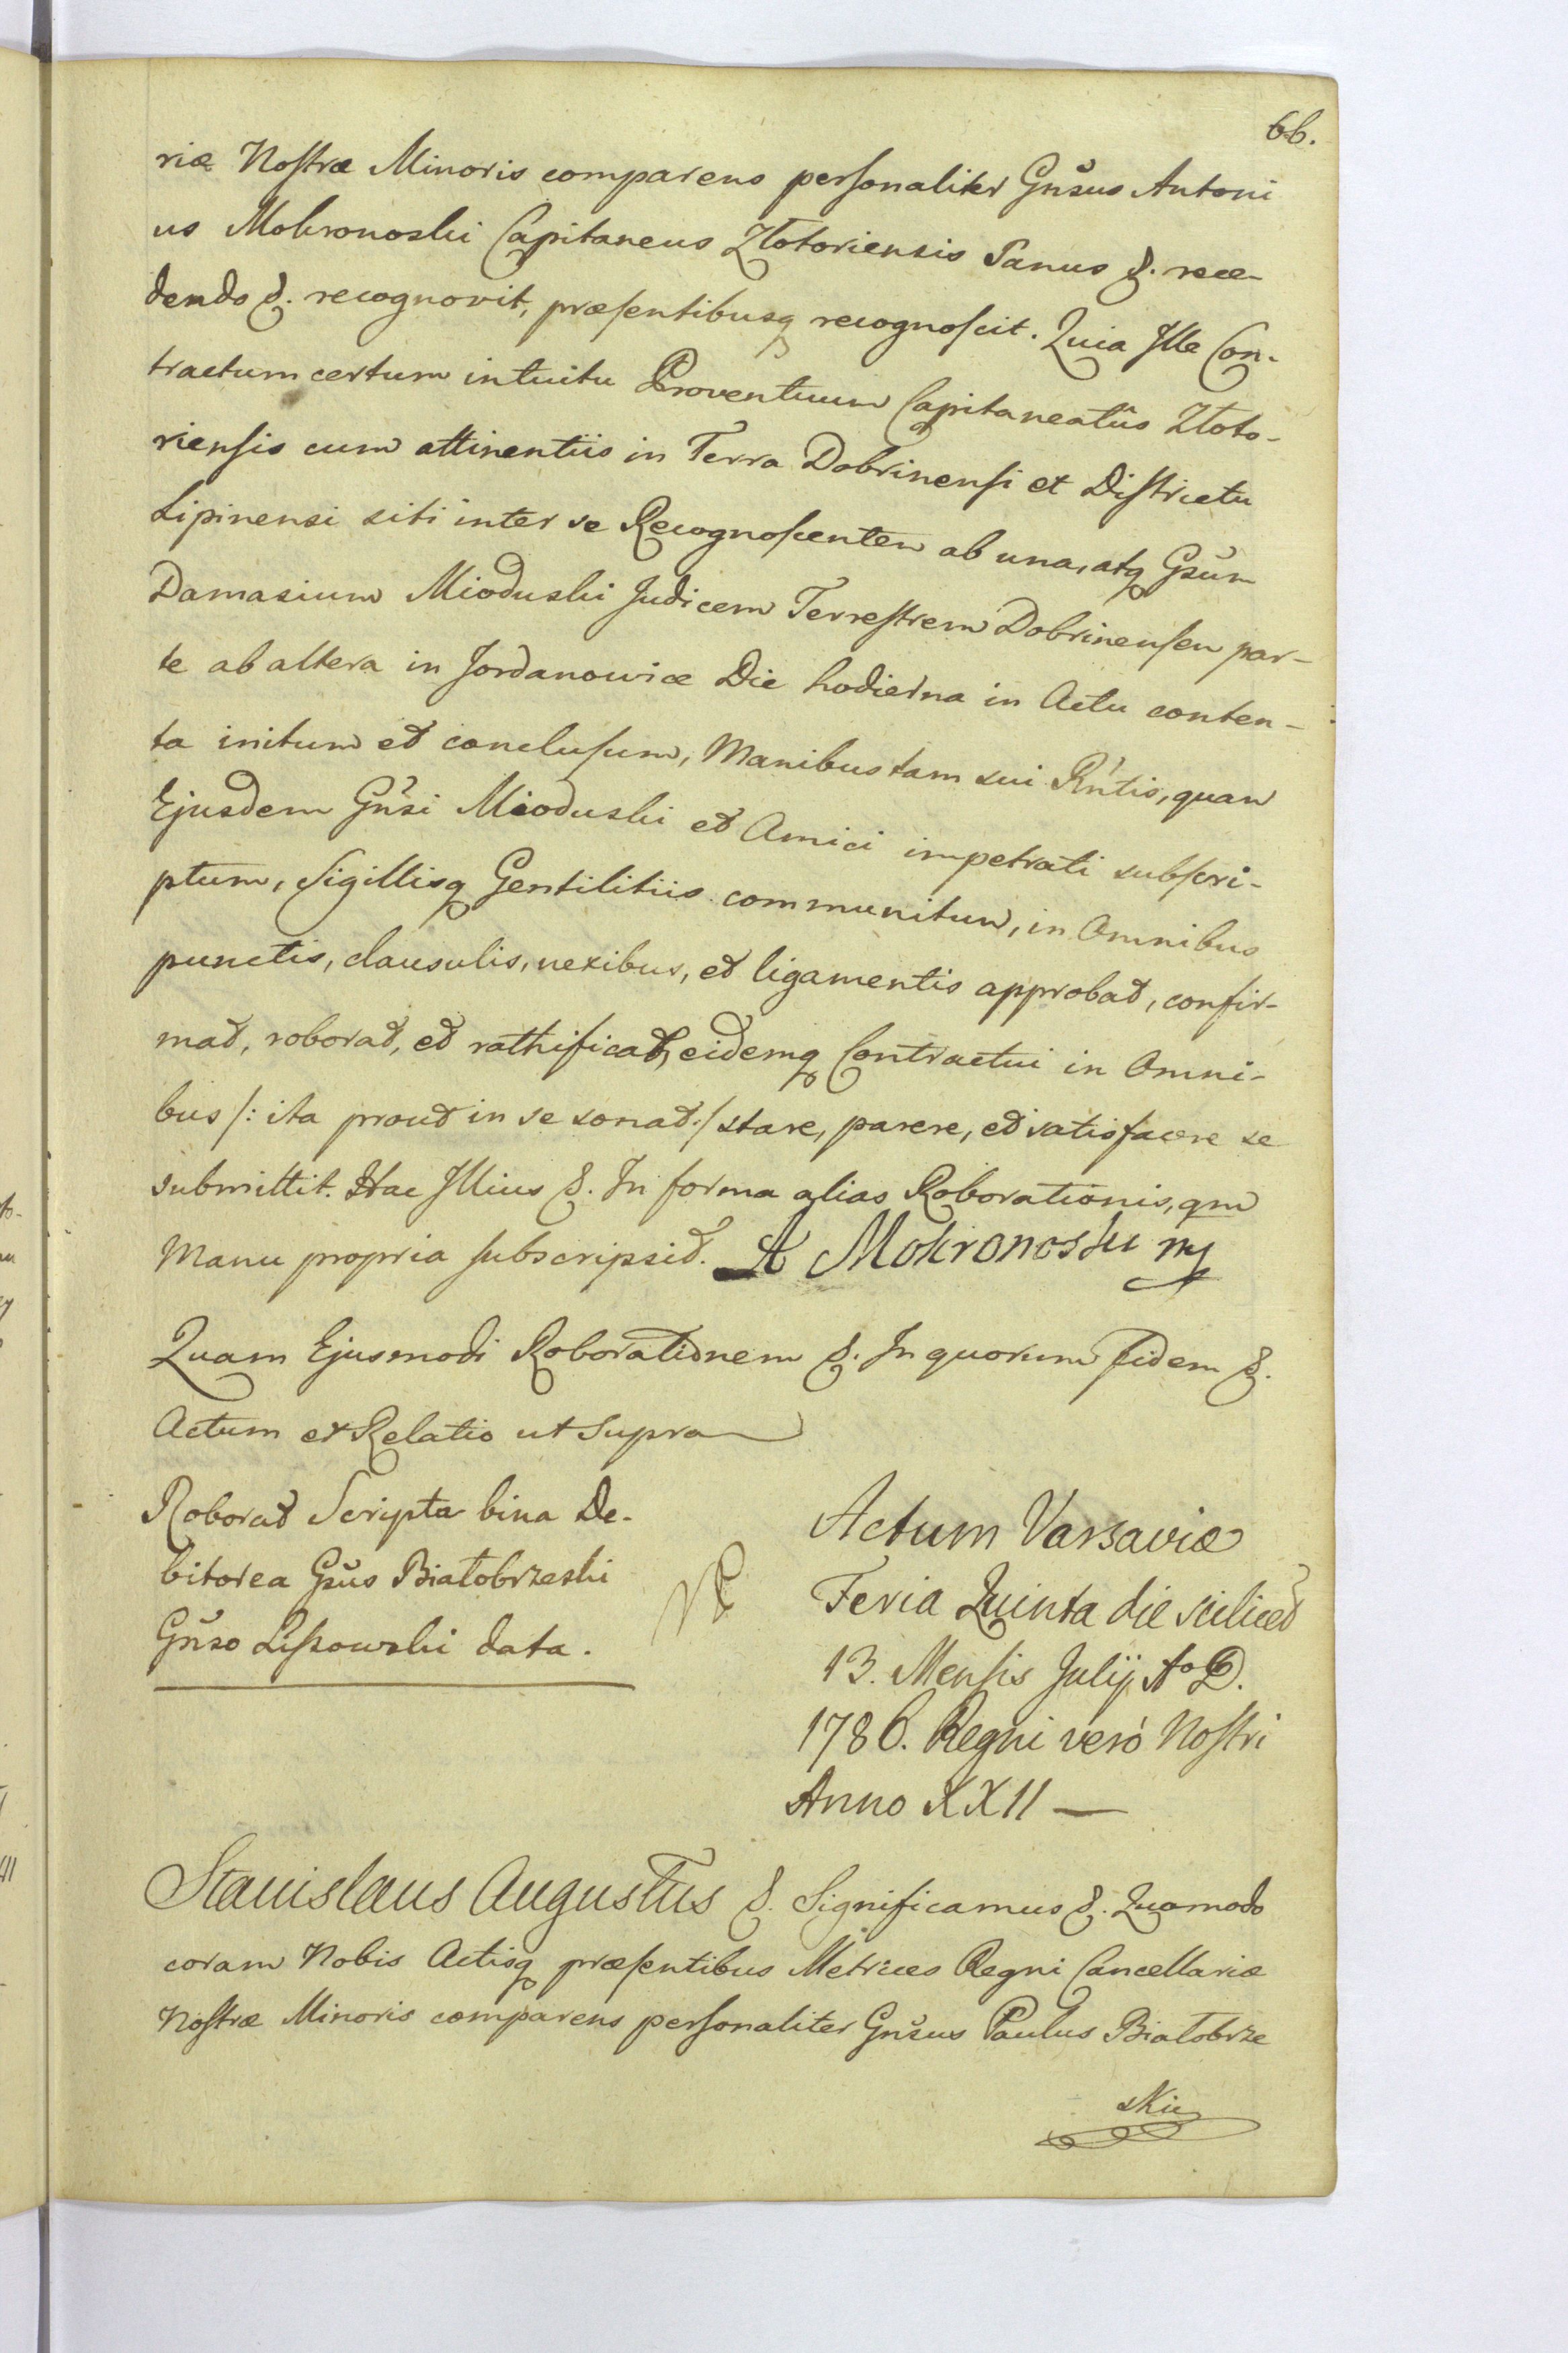 66.
riæ Nostræ Minoris comparens personaliter Gnŝus Antoni
us Mokronoski Capitaneus Złotoriensis Sanus &. rece-
dendo &. recognovit, præsentibusq recognoscit. Quia Ille Con-
tractum certum intuitu Proventuum Capitaneatûs Złoto-
riensis cum attinentiis in Terra Dobrinensi et Districtu
Lipinensi siti inter se Recognoscentem ab una, atq Gsûm
Damasium Mioduski Judicem Terrestrem Dobrinensem par-
te ab altera in Jordanowice Die hodierna in Actu conten-
ta initum et conclusum, Manibus tam sui Rńtis, quam
Ejusdem Gńsi Mioduski et Amici impetrati subscri-
ptum, Sigillisq Gentilitiis communitum, in Omnibus
punctis, clausulis, nexibus, et ligamentis approbat, confir-
mat, roborat, et rathificat, eidemq Contractui in Omni-
bus /: ita prout in se sonat :/ stare, parere, et satisfacere se
submittit. Hac Illius &. In forma alias Roborationis, qm
Manu propria subscripsit. A Mokronoski mp
Quam Ejusmodi Roborationem &. In quorum fidem &.
Actum et Relatio ut Supra
Roborat Scripta bina De-
bitorea Gsûs Białobrzeski
Gnŝo Lissowski data.
Actum Varsaviæ
Feria Quinta die scilicet
13. Mensis Julij Ao D.
1786. Regni verò Nostri
Anno XXII —
Stanislaus Augustus &. Significamus &. Quomodo
coram Nobis Actisq præsentibus Metrices Regni Cancellariæ
Nostræ Minoris comparens personaliter Gnŝus Paulus Białobrze
ski